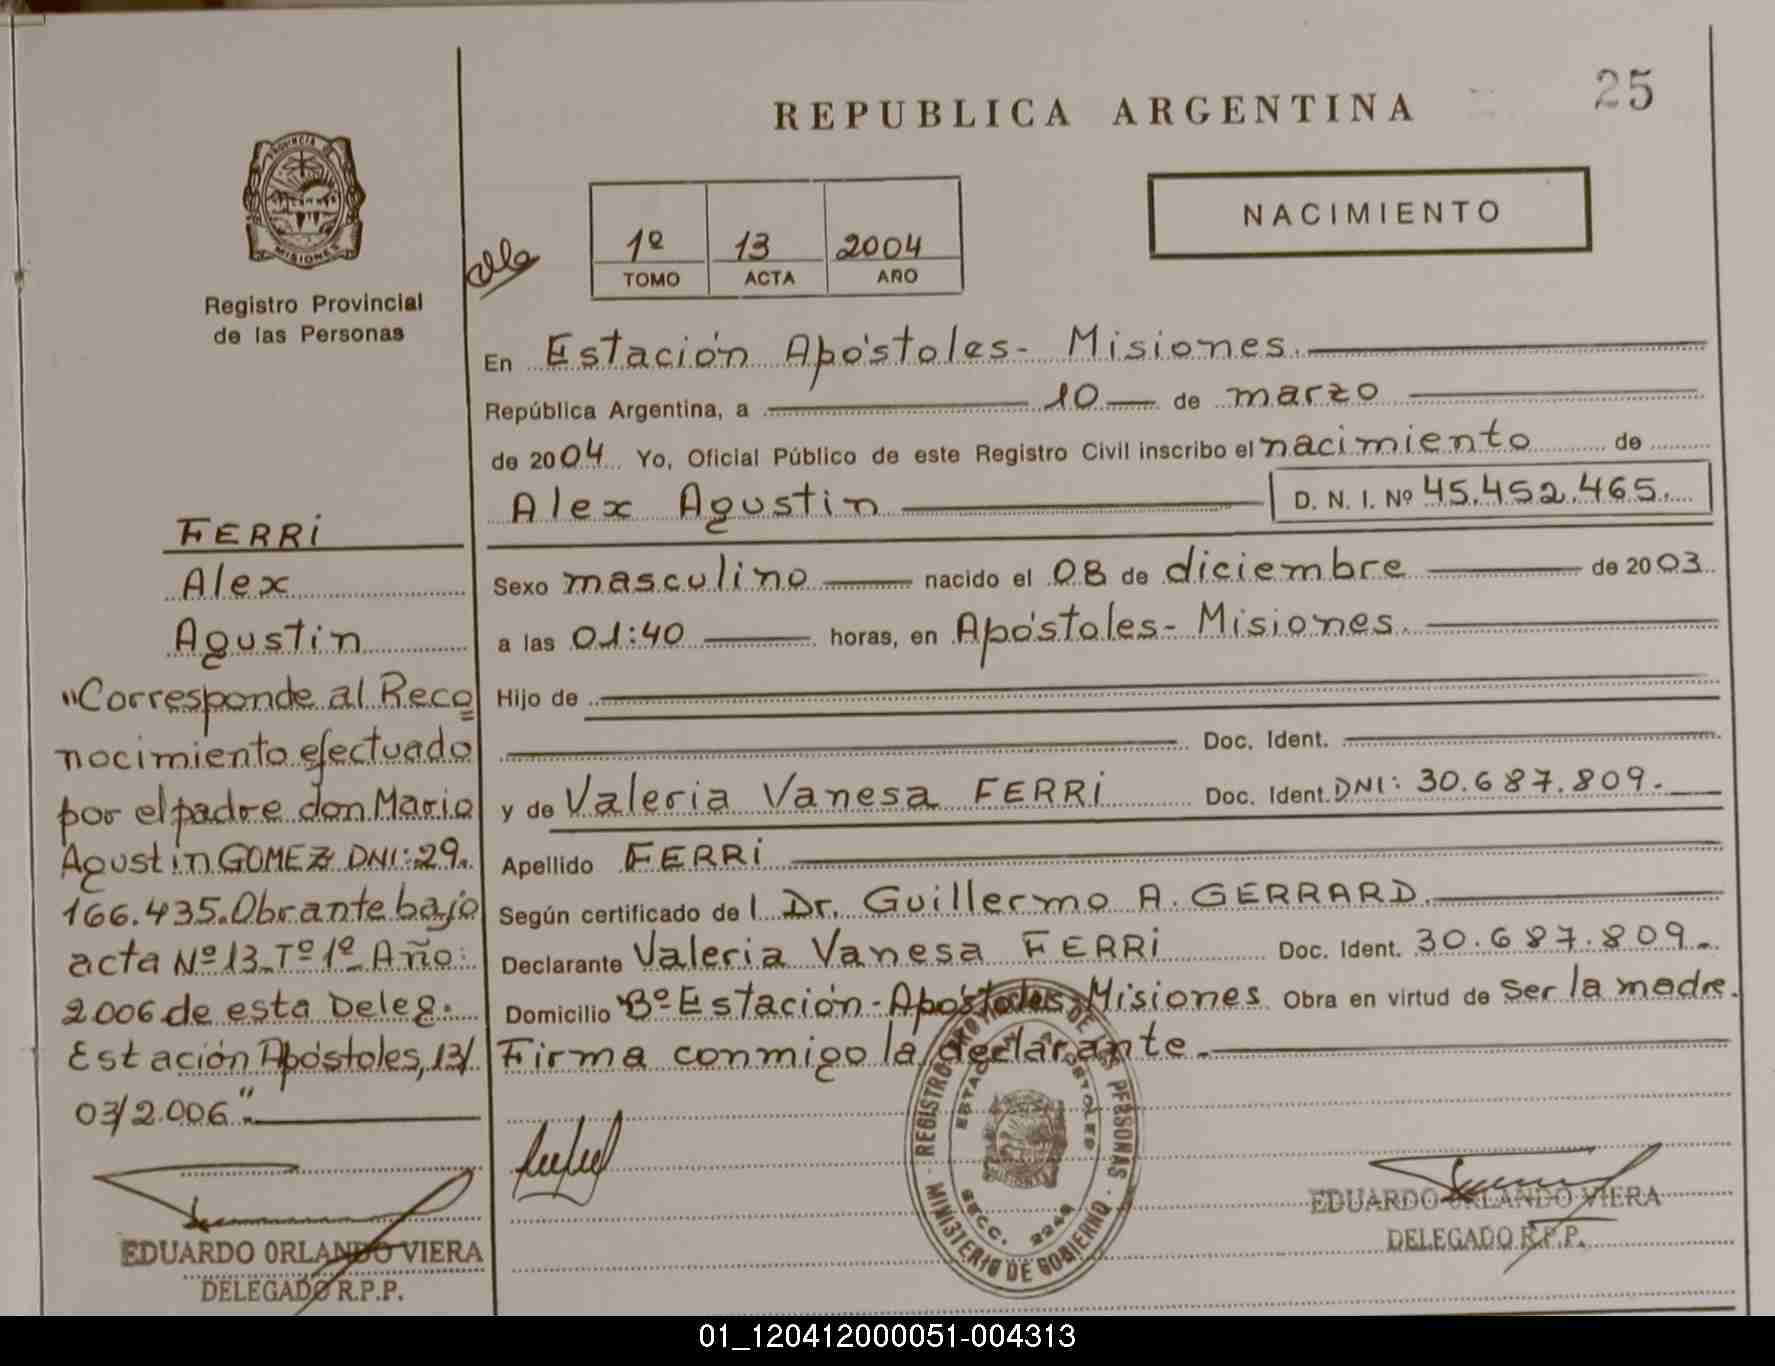 REPUBLICA ARGENTINA
25
PROVINCIA DE
MISIONES
Registro Provincial
de las Personas
1º 13 2004
TOMO ACTA AÑO
NACIMIENTO
En Estación Apóstoles - Misiones.
República Argentina, a 10 de marzo
de 2004 Yo, Oficial Público de este Registro Civil inscribo el nacimiento de
Alex Agustin D. N. I. Nº 45.452.465.
Sexo masculino nacido el 08 de diciembre de 2003
a las 01:40 horas, en Apóstoles - Misiones.
Hijo de
Doc. Ident.
y de Valeria Vanesa FERRi Doc. Ident. DNI: 30.687.809.-
Apellido FERRi
Según certificado de l Dr. Guillermo A. GERRARD.
Declarante Valeria Vanesa FERRi Doc. Ident. 30.687.809.-
Domicilio Bº Estación - Apóstoles - Misiones Obra en virtud de Ser la madre.
Firma conmigo la declarante.
FERRi
Alex
Agustin
"Corresponde al Reco
nocimiento efectuado
por el padre don Mario
Agustin GOMEZ DNI: 29.
166.435. Obrante bajo
acta Nº 13 - Tº 1º Año:
2006 de esta Deleg.
Estación Apóstoles, 13/
03/2.006"
EDUARDO ORLANDO VIERA
DELEGADO R.P.P.
REGISTRO PROVINCIAL DE LAS PERSONAS
MINISTERIO DE GOBIERNO
ESTACION APOSTOLES
SECC. 2249
MISIONES
EDUARDO ORLANDO VIERA
DELEGADO R.P.P.
01_120412000051-004313